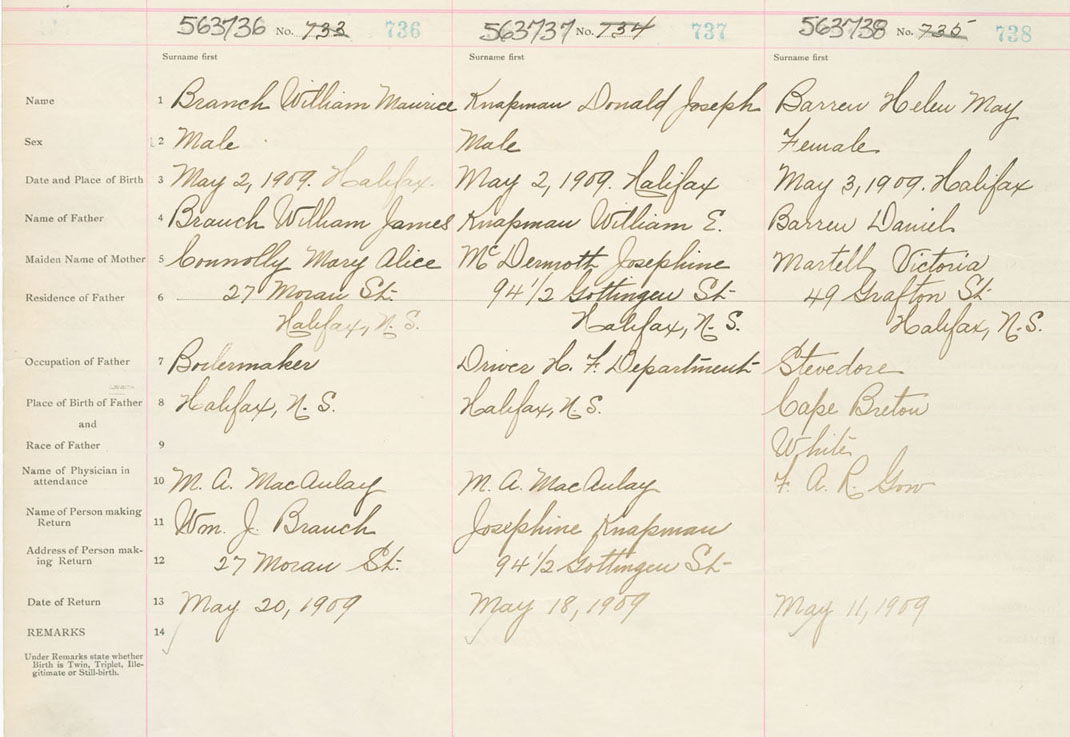 563736 No. 733 736 563737 No. 734 737 563738 No. 735 738
Surname first Surname first Surname first
Name 1 Branch William Maurice Knapman Donald Joseph Barren Helen May
Sex 2 Male Male Female
Date and Place of Birth 3 May 2, 1909. Halifax. May 2, 1909. Halifax May 3, 1909. Halifax
Name of Father 4 Branch William James Knapman William E. Barren Daniel
Maiden Name of Mother 5 Connolly Mary Alice McDermoth Josephine Martell, Victoria
Residence of Father 6 27 Moran St. 94 1/2 Gottingen St- 49 Grafton St-
Halifax, N. S. Halifax, N. S. Halifax, N. S.
Occupation of Father 7 Boilermaker Driver H. F. Department Stevedore
Place of Birth of Father 8 Halifax, N. S. Halifax, N. S. Cape Breton
and
Race of Father 9 White
Name of Physician in
attendance 10 M. A. MacAulay M. A. MacAulay F. A. R. Gow
Name of Person making
Return 11 Wm. J. Branch Josephine Knapman
Address of Person mak-
ing Return 12 27 Moran St. 94 1/2 Gottingen St-
Date of Return 13 May 20, 1909 May 18, 1909 May 11, 1909
REMARKS 14
Under Remarks state whether
Birth is Twin, Triplet, Ille-
gitimate or Still-birth.